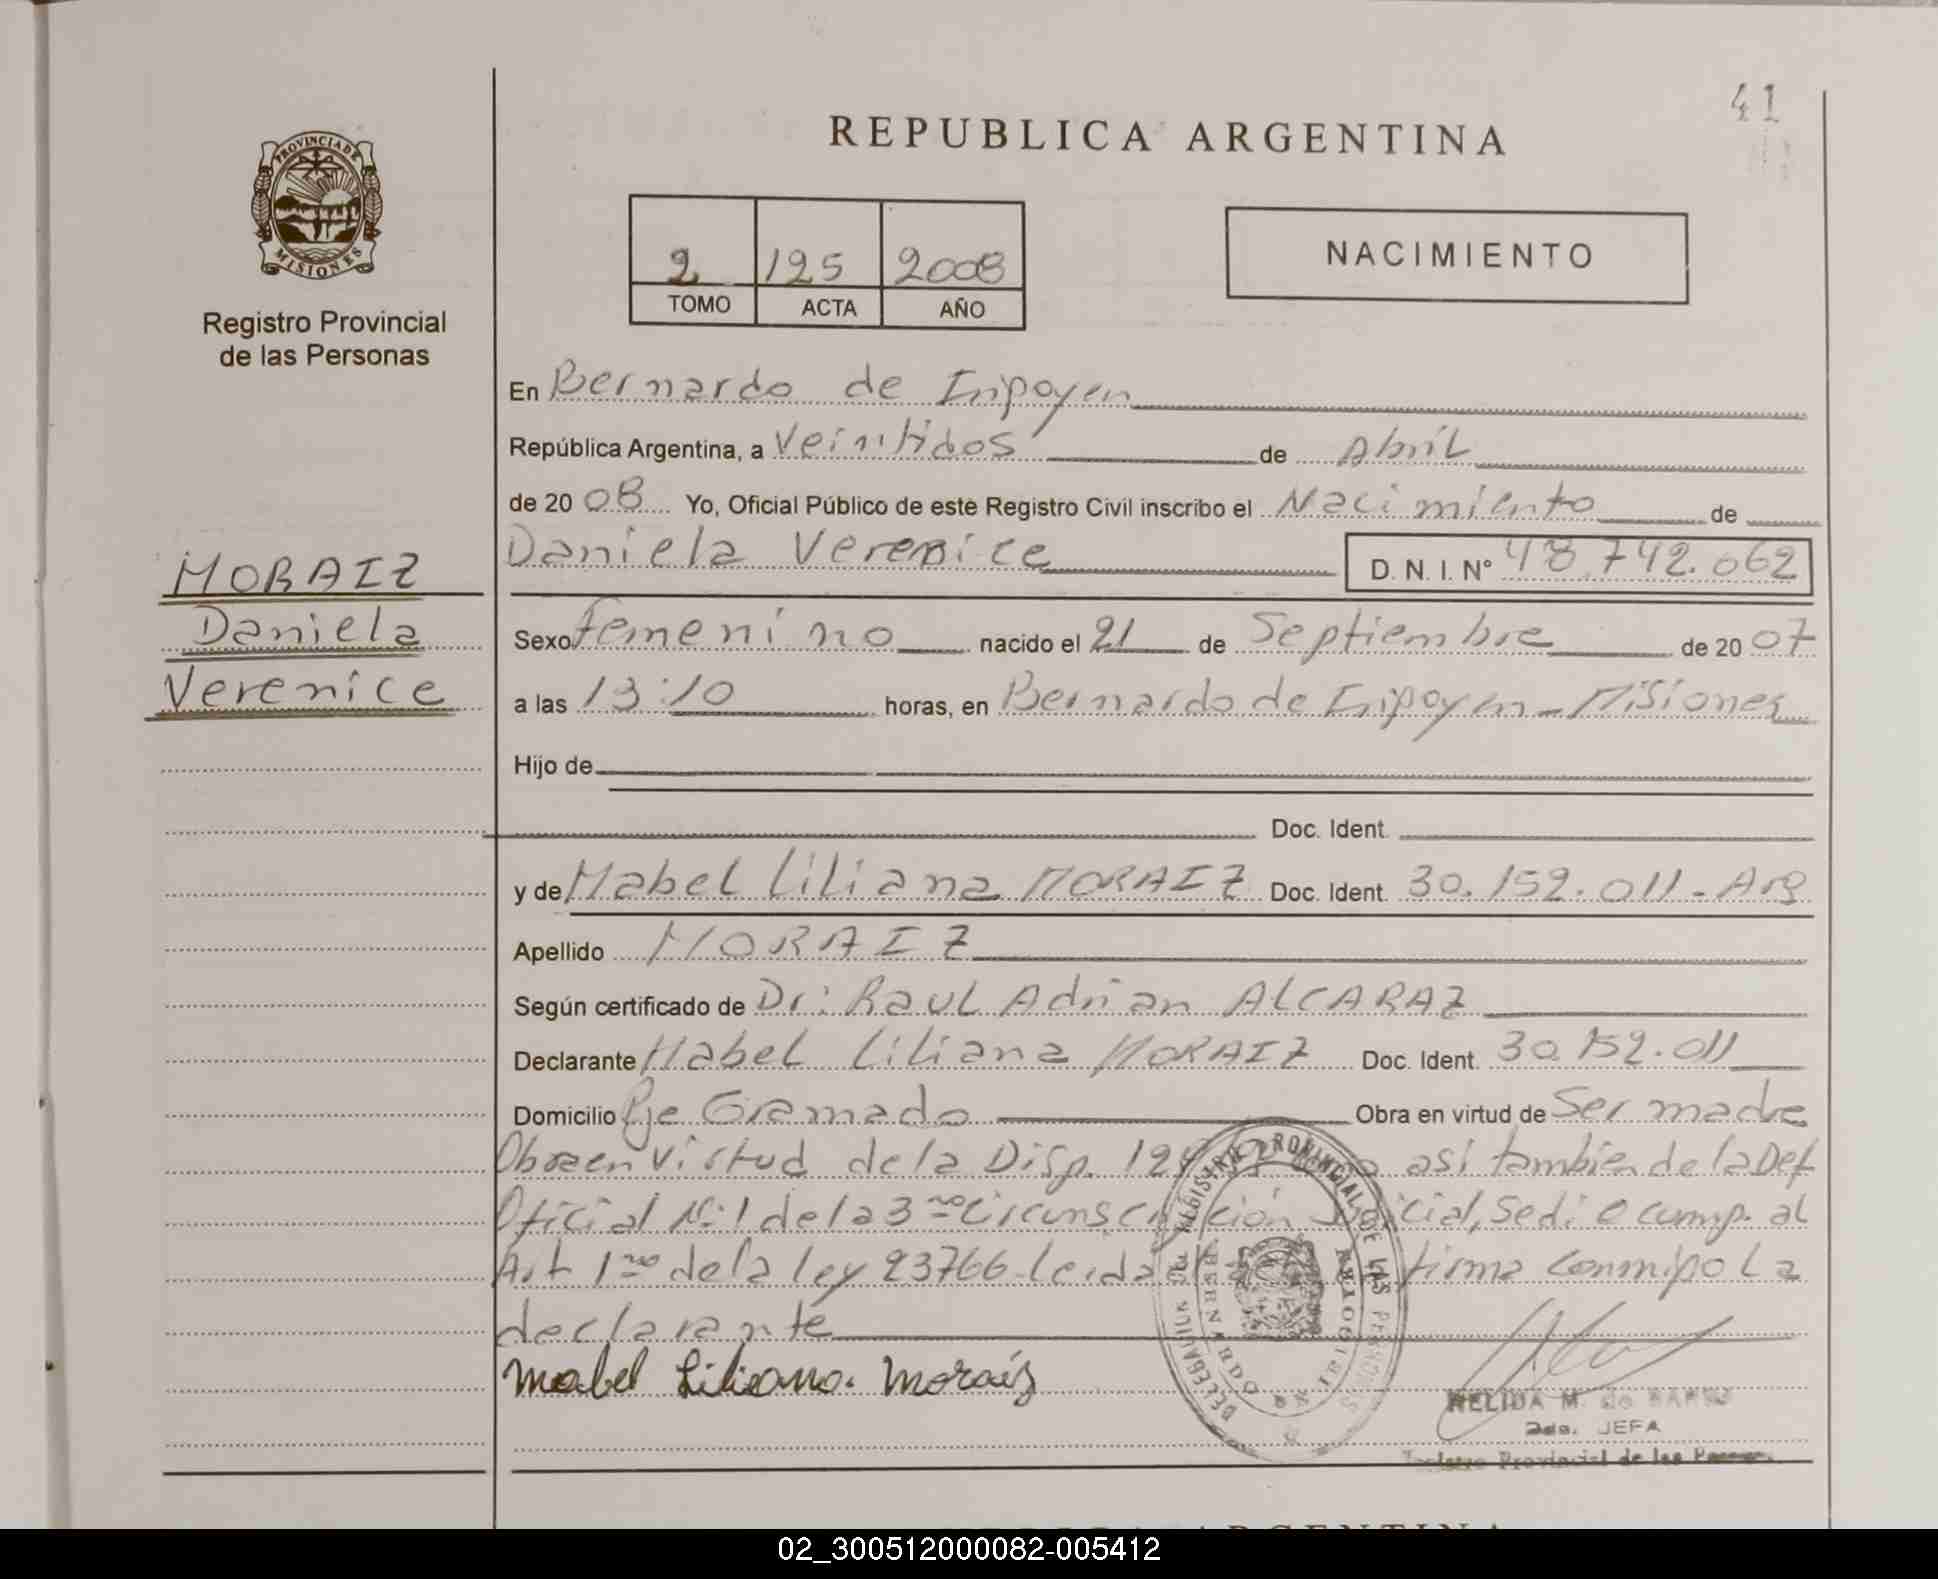 41
REPUBLICA ARGENTINA
PROVINCIA DE
MISIONES
Registro Provincial
de las Personas
2 125 2008
TOMO ACTA AÑO
NACIMIENTO
En Bernardo de Irigoyen
República Argentina, a Veintidos de Abril
de 2008 Yo, Oficial Público de este Registro Civil inscribo el Nacimiento de
Daniela Verenice D. N. I. N° 48.742.062
MORAIZ
Daniela
Verenice
Sexo Femenino nacido el 21 de Septiembre de 2007
a las 13:10 horas, en Bernardo de Irigoyen - Misiones
Hijo de
Doc. Ident.
y de Mabel Liliana MORAIZ Doc. Ident. 30.152.011 - Arg
Apellido MORAIZ
Según certificado de Dr: Raul Adrian ALCARAZ
Declarante Mabel Liliana MORAIZ Doc. Ident. 30.152.011
Domicilio Pje Gramado Obra en virtud de Ser madre
Obra en virtud de la Disp. asi tambien de la Def
Oficial N° 1 de la 3 Circunscripción Judicial, se di o cump. al
Art 1 de la ley 23766 - Leida firma conmigo La
declarante
Mabel Liliana. Moraiz
REGISTRO PROVINCIAL DE LAS PERSONAS
NELIDA M. de
JEFA
Registro Provincial de las Personas
ARGENTINA
02_300512000082-005412